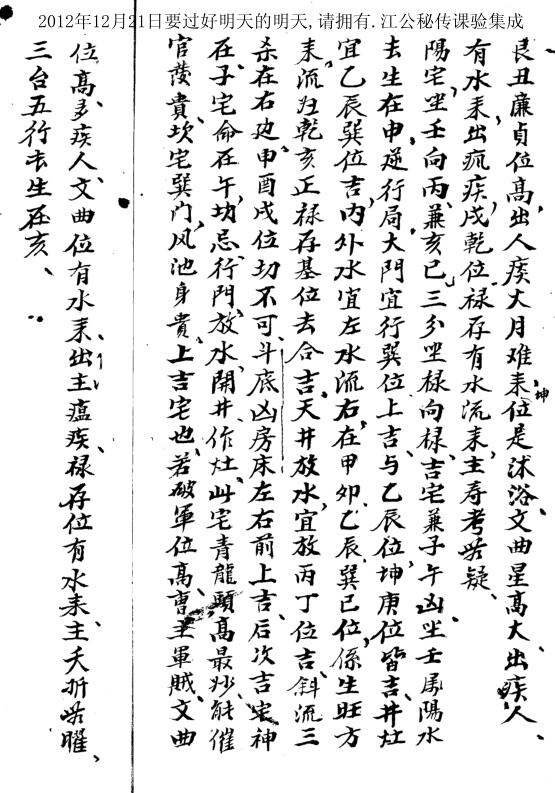 2012年12月21日要过好明天的明天,请拥有.江公秘传课验集成
艮丑廉貞位高、出人痰火月难、来位是沐浴、文曲星高大、出疾人、
坤
有水来、出疯疾、戌乾位禄存有水流来、主寿考無疑、
陽宅、坐壬向丙、兼亥巳、三分坐禄向禄、吉宅兼子午凶、坐壬属陽水
去生在申、逆行局、大門宜行巽位上吉、与乙辰位、坤庚位皆吉、井灶
宜乙辰巽位吉、内外水宜左水流右、在甲卯乙辰巽巳位、係生旺方
来流归乾亥正禄存基位去合吉、天井放水、宜放丙丁位吉、斜流三
杀在右边、申酉戌位切不可、斗底凶、房床左右前上吉、后次吉、宅神
在子、宅命在午、切忌、行門、放水、開井、作灶、此宅青龍頭高最妙、能催
官荫貴、坎宅巽门、风池身貴、上吉宅也、若破軍位高、出主軍賊、文曲
位高、多疾人、文曲位有水来、出主瘟疾、禄存位有水来、主夭折無曜、
三台五行长生在亥、